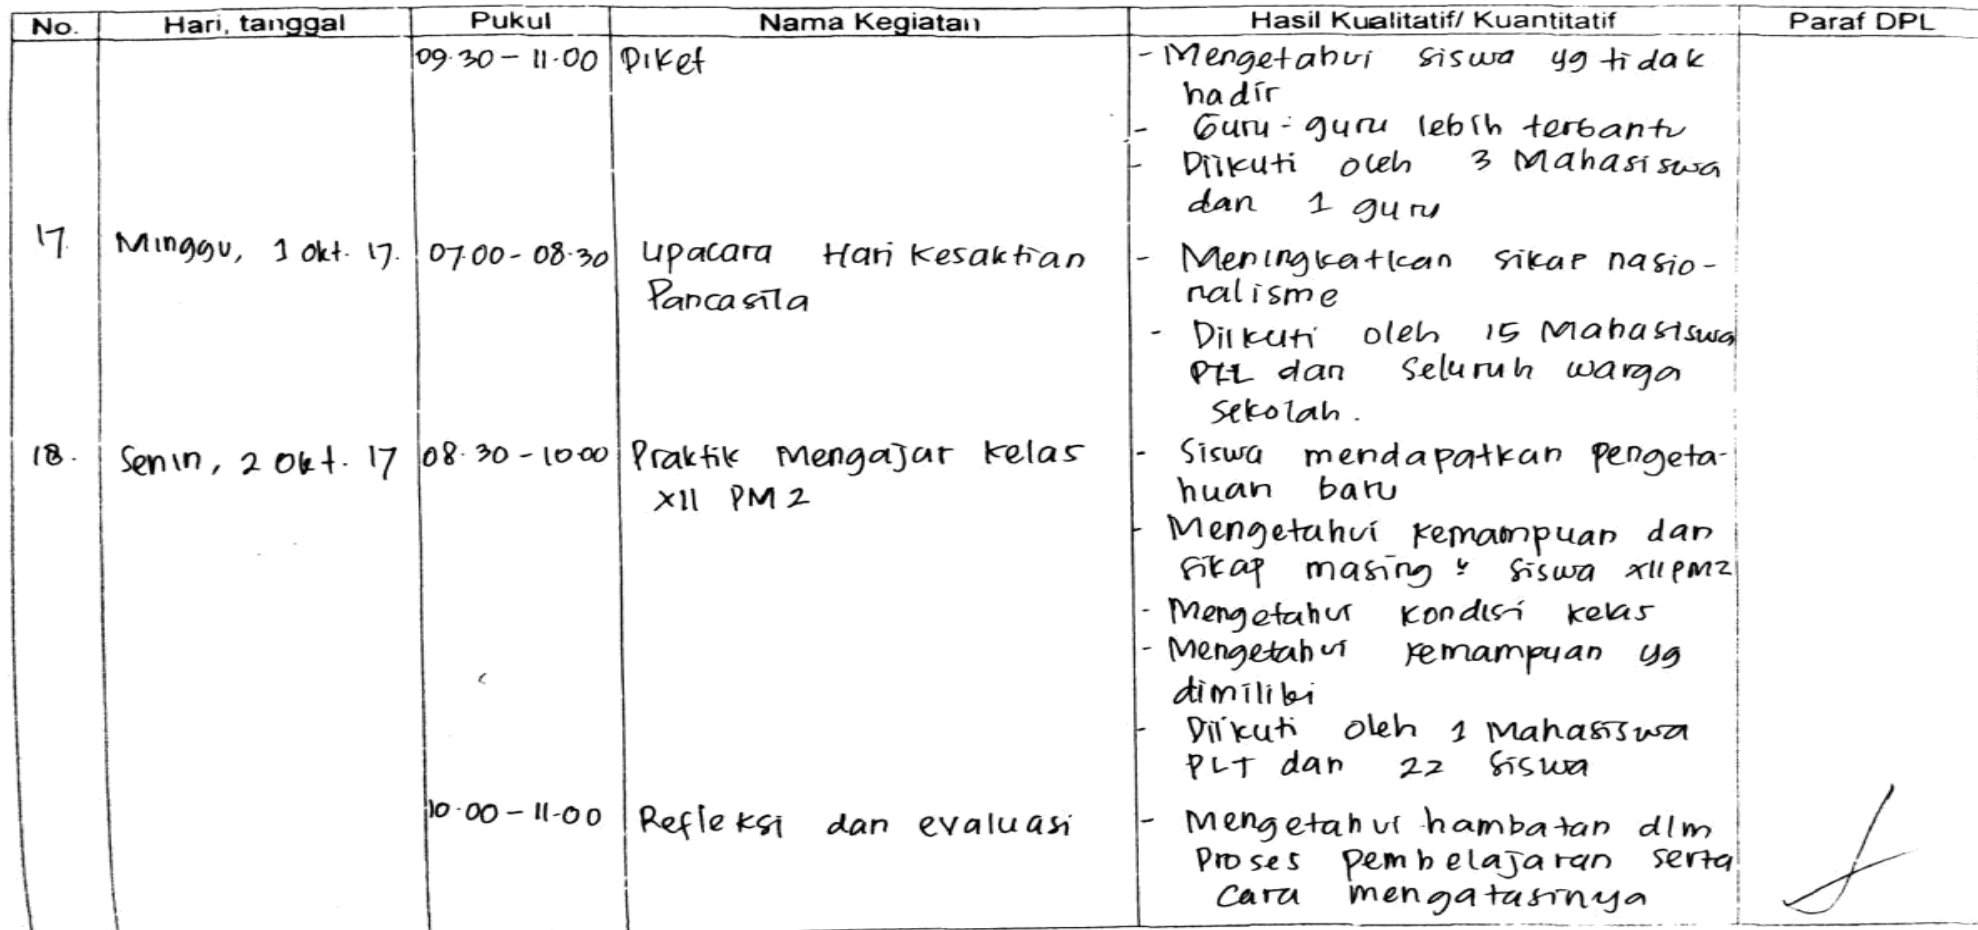 No. Hari, tanggal Pukul Nama Kegiatan Hasil Kualitatif/ Kuantitatif Paraf DPL
09.30 - 11.00 Piket - Mengetahui siswa yg tidak
hadir
- Guru-guru lebih terbantu
- Diikuti oleh 3 Mahasiswa
dan 1 guru
17. Minggu, 1 Okt. 17. 07.00 - 08.30 Upacara Hari Kesaktian - Meningkatkan sikap nasio-
Pancasila nalisme
- Diikuti oleh 15 Mahasiswa
dan seluruh warga
sekolah.
18. Senin, 2 Okt. 17 08.30 - 10.00 Praktik Mengajar kelas - Siswa mendapatkan pengeta-
XII PM 2 huan baru
- Mengetahui kemampuan dan
sikap masing siswa XII PM2
- Mengetahui kondisi kelas
- Mengetahui kemampuan yg
dimiliki
- Diikuti oleh 1 Mahasiswa
PLT dan 22 siswa
10.00 - 11.00 Refleksi dan evaluasi - Mengetahui hambatan dlm
proses pembelajaran serta
cara mengatasinya